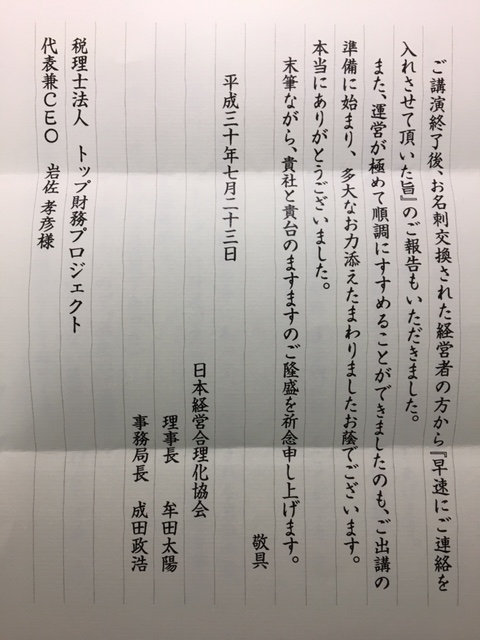 ご講演終了後、お名刺交換された経営者の方から『早速にご連絡を
入れさせて頂いた旨』のご報告もいただきました。
また、運営が極めて順調にすすめることができましたのも、ご出講の
準備に始まり、多大なお力添えたまわりましたお蔭でございます。
本当にありがとうございました。
末筆ながら、貴社と貴台のますますのご隆盛を祈念申し上げます。
敬具
平成三十年七月二十三日
日本経営合理化協会
理事長 牟田太陽
事務局長 成田政浩
税理士法人 トップ財務プロジェクト
代表兼CEO 岩佐孝彦様